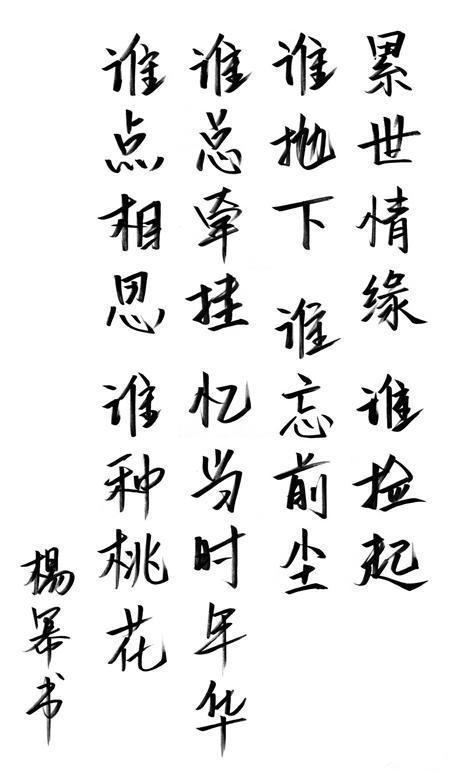 累世情缘 谁捡起
谁抛下 谁忘前尘
谁总牵挂 忆当时年华
谁点相思 谁种桃花
楊幂书